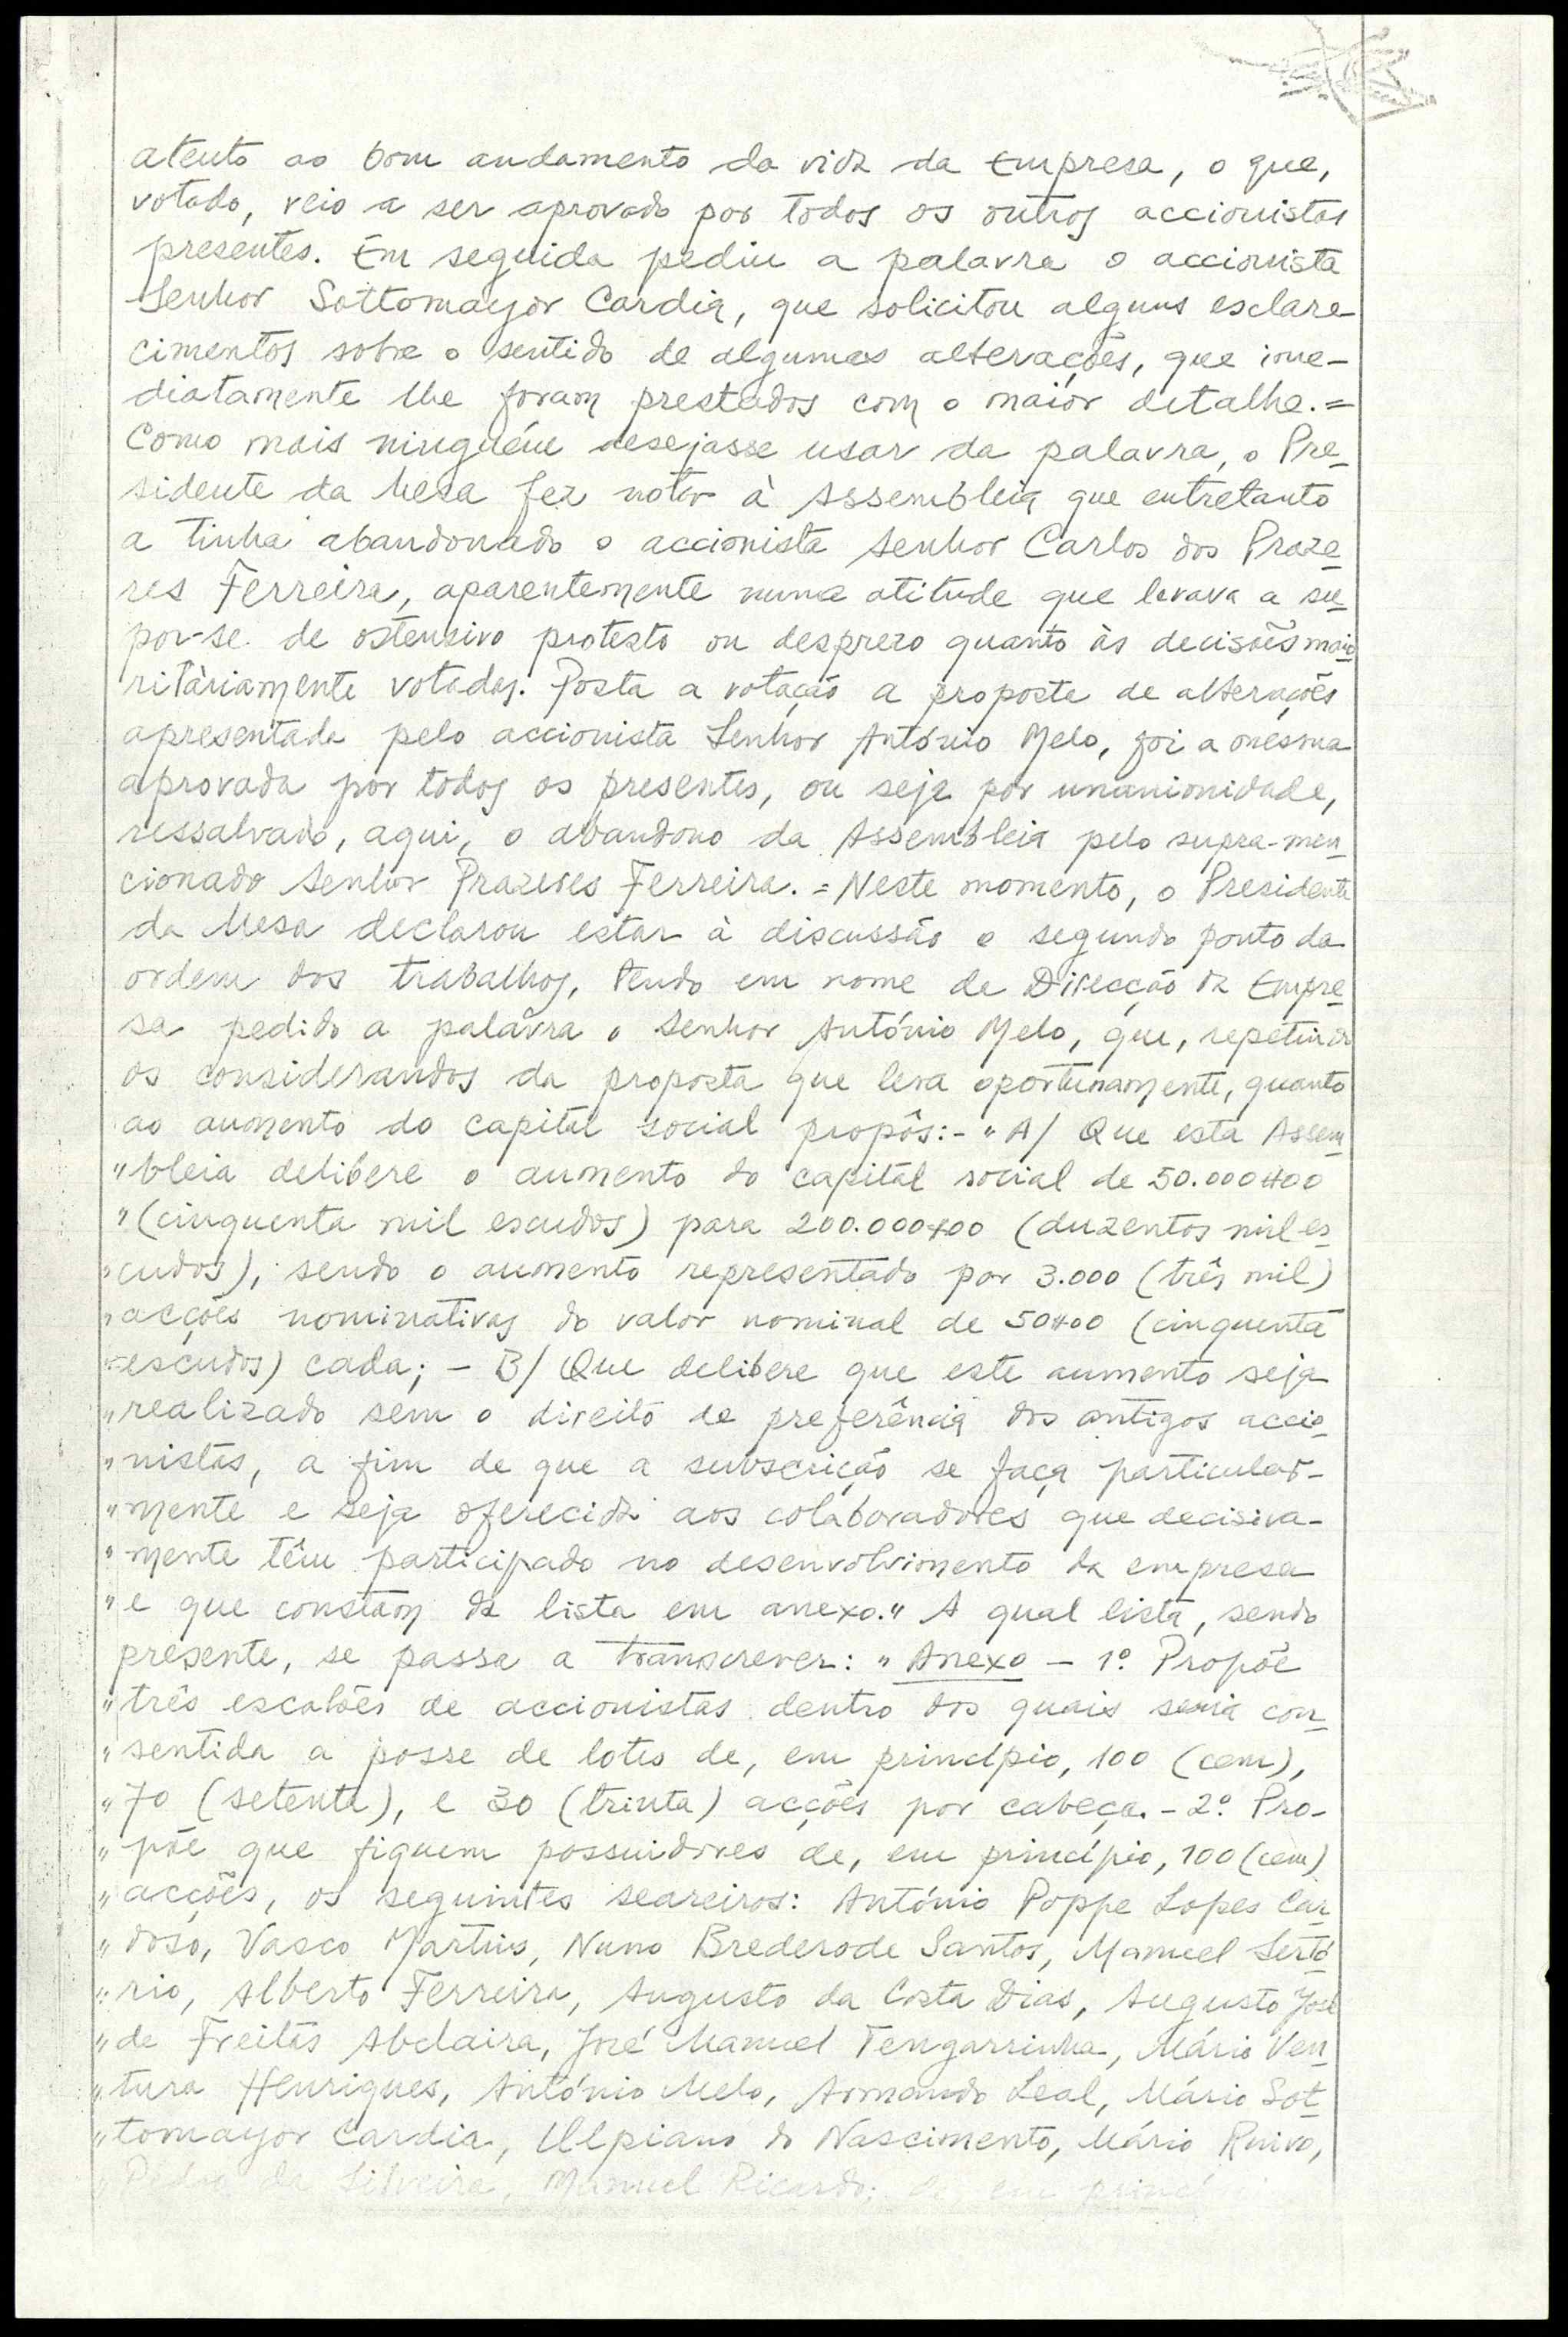 atento ao bom andamento da vida da Empresa, o que,
votado, veio a ser aprovado por todos os outros accionistas
presentes. Em seguida pediu a palavra o accionista
Senhor Sottomayor Cardia, que solicitou alguns esclare-
cimentos sobre o sentido de algumas alterações, que ime-
diatamente lhe foram prestados com o maior detalhe.=
Como mais ninguém desejasse usar da palavra, o Pre-
sidente da Mesa fez notar à Assembleia que entretanto
a tinha abandonado o accionista Senhor Carlos dos Praze-
res Ferreira, aparentemente numa atitude que levava a su-
por-se de ostensivo protesto ou desprezo quanto às decisões maio-
ritàriamente votadas. Posta a votação a proposta de alterações
apresentada pelo accionista Senhor António Melo, foi a mesma
aprovada por todos os presentes, ou seja por unanimidade,
ressalvado, aqui, o abandono da Assembleia pelo supra-men-
cionado Senhor Prazeres Ferreira.=Neste momento, o Presidente
da Mesa declarou estar à discussão o segundo ponto da
ordem dos trabalhos, tendo em nome da Direcção da Empre-
sa pedido a palavra o Senhor António Melo, que, repetindo
os considerandos da proposta que lera oportunamente, quanto
ao aumento do capital social propôs:- "A/ Que esta Assem-
"bleia delibere o aumento do capital social de 50.000$00
"(cinquenta mil escudos) para 200.000$00 (duzentos mil es-
"cudos), sendo o aumento representado por 3.000 (três mil)
"acções nominativas do valor nominal de 50$00 (cinquenta
"escudos) cada; - B/ Que delibere que este aumento seja
"realizado sem o direito de preferência dos antigos accio-
"nistas, a fim de que a subscrição se faça particular-
"mente e seja oferecida aos colaboradores que decisiva-
"mente têm participado no desenvolvimento da empresa
"e que constam da lista em anexo." A qual lista, sendo
presente, se passa a transcrever: "Anexo - 1º. Propõe
"três escalões de accionistas dentro dos quais seria con-
"sentida a posse de lotes de, em princípio, 100 (cem),
"70 (setenta), e 30 (trinta) acções por cabeça. - 2º. Pro-
"põe que fiquem possuidores de, em princípio, 100 (cem)
"acções, os seguintes seareiros: António Poppe Lopes Car-
"doso, Vasco Martins, Nuno Brederode Santos, Manuel Sertó-
"rio, Alberto Ferreira, Augusto da Costa Dias, Augusto José
"de Freitas Abelaira, José Manuel Tengarrinha, Mário Ven-
"tura Henriques, António Melo, Armando Leal, Mário Sot-
"tomayor Cardia, Ulpiano do Nascimento, Mário Ruivo,
"Pedro da Silveira, Manuel Ricardo; de, em princí